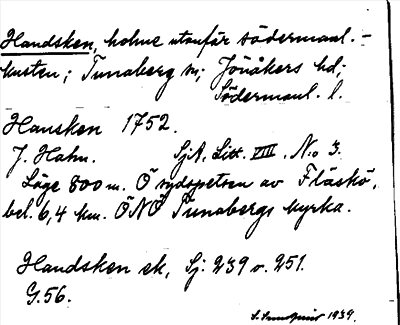 Handsken, holme utanför Södermanl.-
kusten; Tunaberg sn; Jönåkers hd;
Södermanl. l.
Hansken 1752.
J. Hahn. SjA, Litt. VIII, No 3.
Läge 800 m. Ö sydspetsen av Fläskö,
bel. 6,4 km. ÖNÖ Tunabergs kyrka.
Handsken ek, Sj: 239 o. 251.
G.56.
1939.